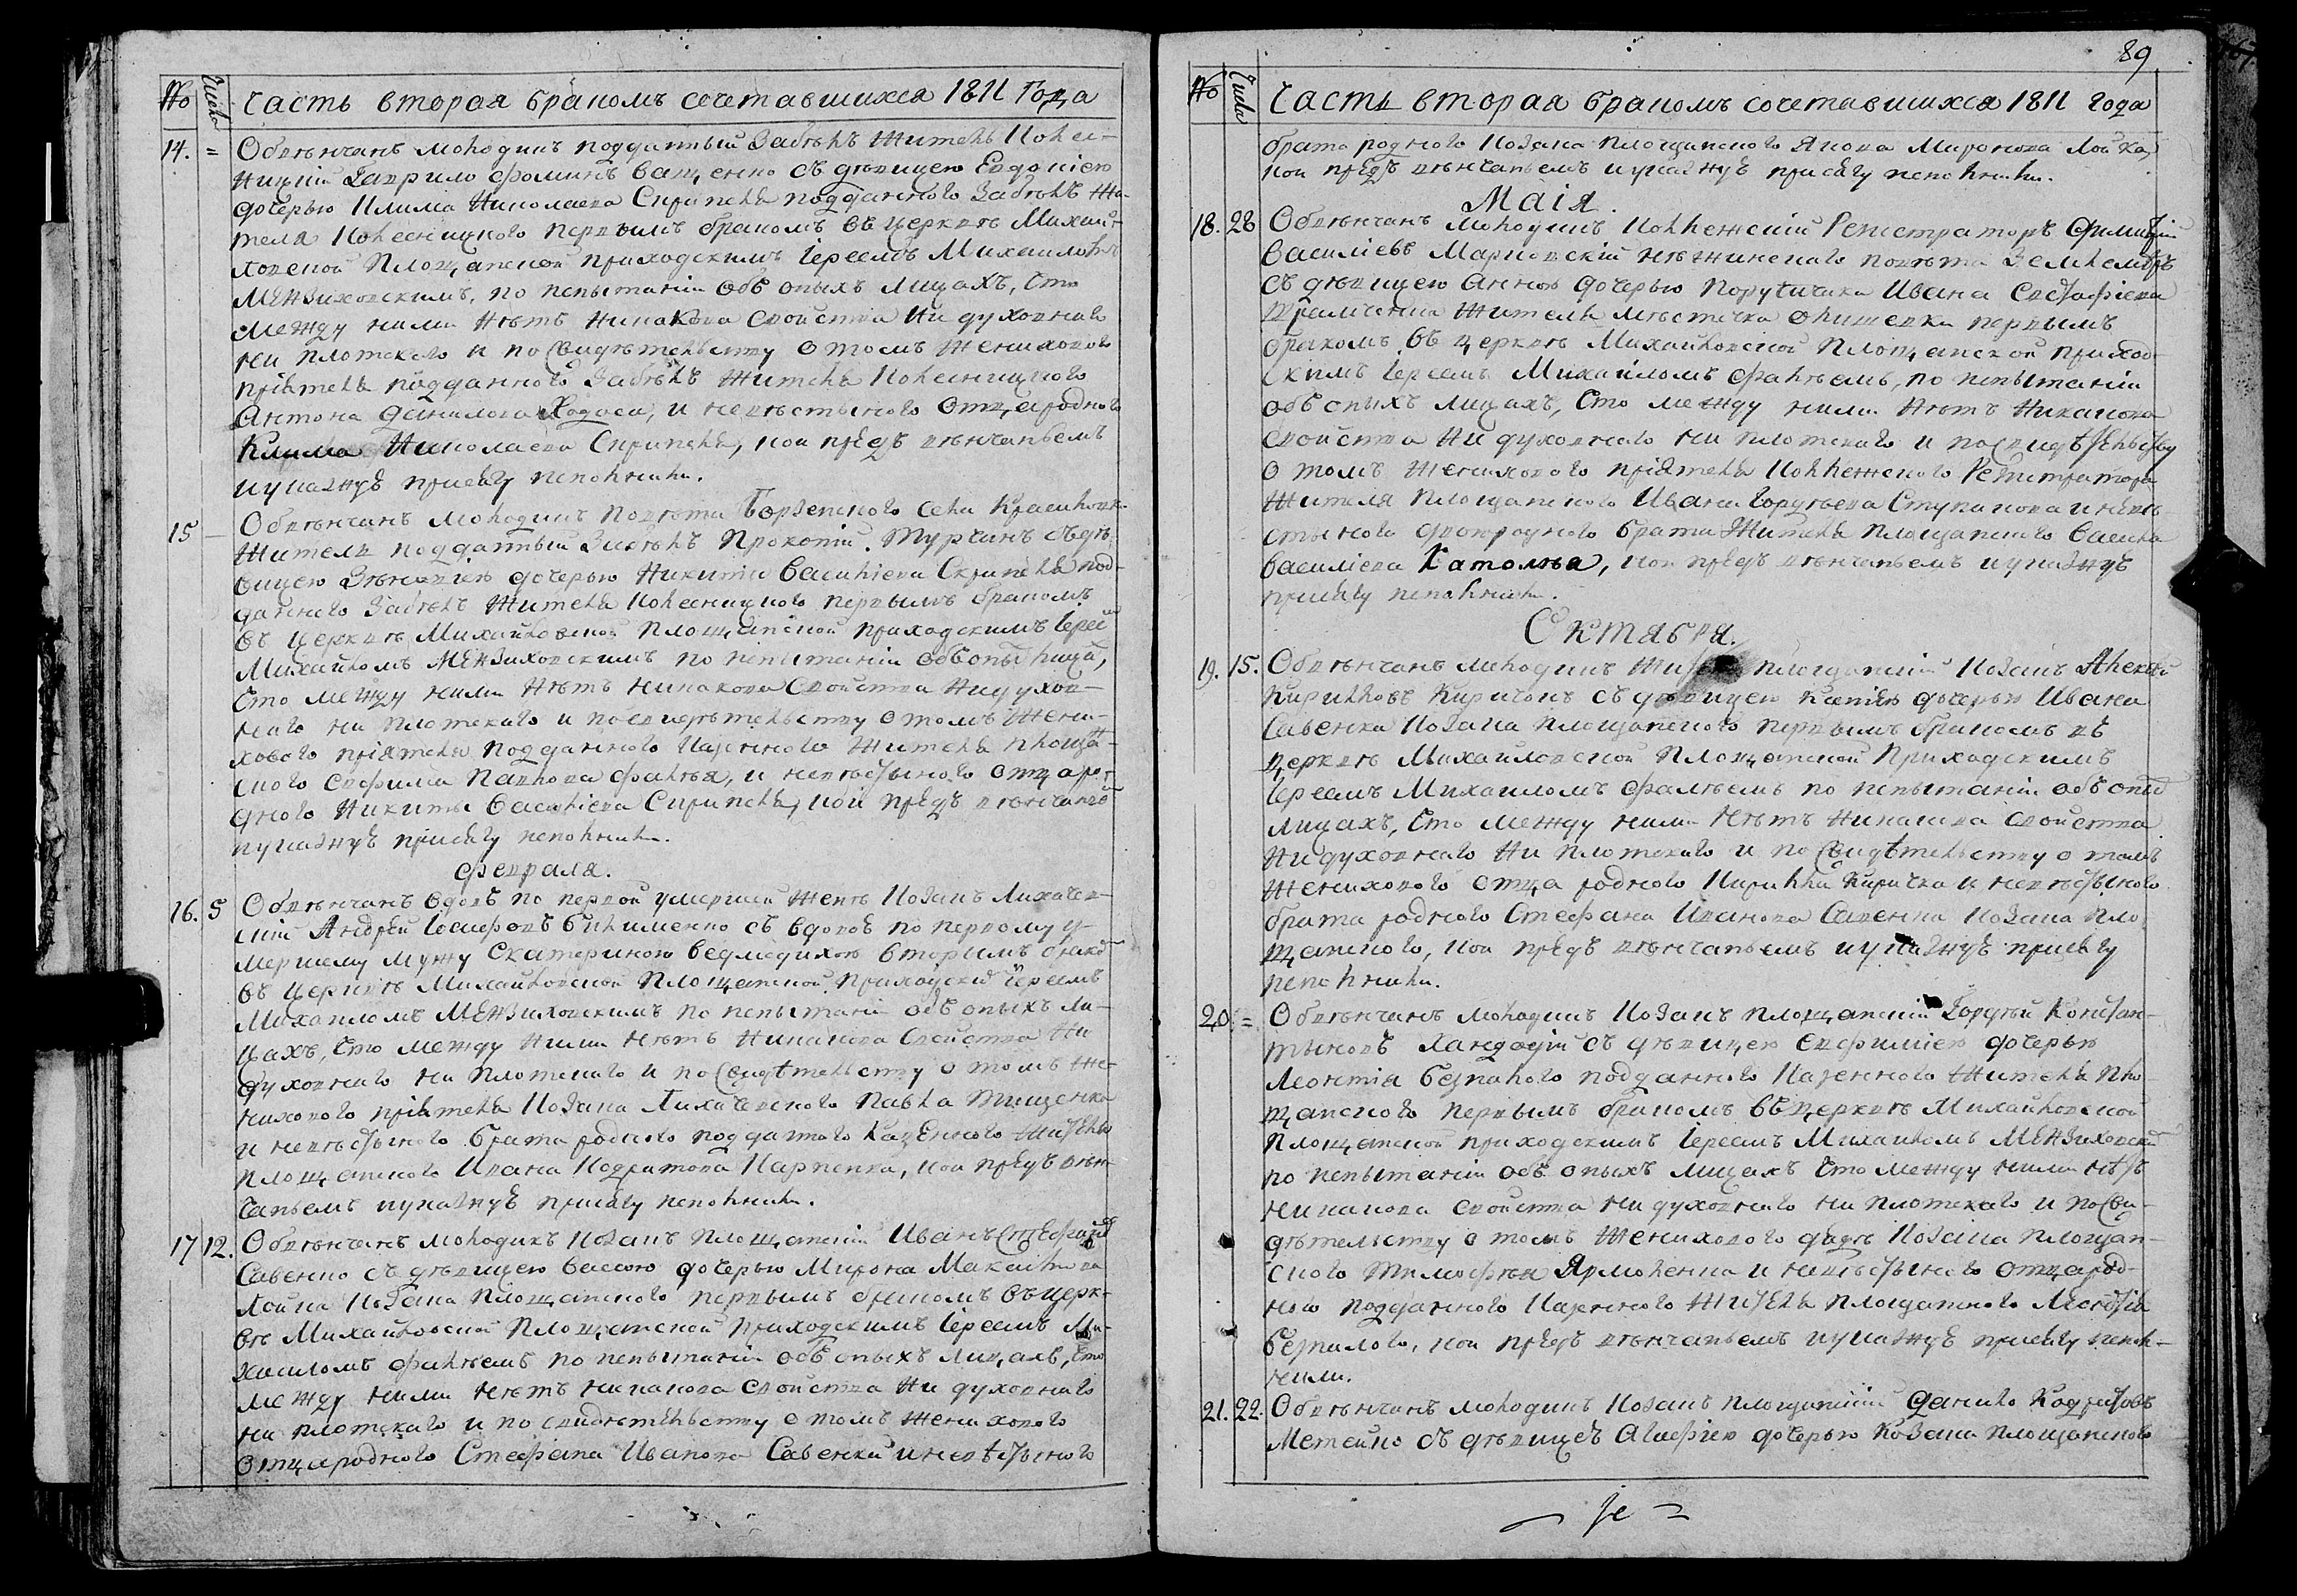 № Числа Часть вторая бракомъ сочетавшихся 1811 года
14. = Обвѣнчанъ молодикъ подданный Забѣлъ житель Колес-
ницкій Гаврило Фоминъ Ващенко съ дѣвицею Евдокіею
дочерью Клима Николаева Скрипсля подданного Забѣлъ жи-
теля Колесницкого первымъ бракомъ въ церквѣ Михай-
ловской Площанской приходскимъ Іереемъ Михаиломъ
Мензиховскимъ, по испытаніи объ оныхъ лицахъ, что
между ними нѣтъ никакова свойства ни духовнаго
ни плотскаго и по свидѣтельству о томъ женихового
пріятеля подданного Забѣлъ жителя Колесницкого
Антона Данилова Ходоса, и невѣстыного отца родного
Клима Николаева Скрипсля, кои предъ вѣнчаньемъ
и указную присягу исполнили.
15 – Обвѣнчанъ молодикъ повѣта Борзенского села Красиловки
житель подданный Забѣлъ Прокопій Турчинъ съ дѣ-
вицею Зѣновіею дочерью Никиты Василіева Скрипсля под-
данного Забѣлъ жителя Колесницкого первымъ бракомъ
въ церквѣ Михайловской Площанской приходскимъ Іерей
Михайломъ Мензиховскимъ по испытаніи объ оны лица,
что между ними нѣтъ никакова свойства ни духов-
наго ни плотскаго и по свидѣтельству о томъ жени-
хового пріятеля подданного Казенного жителя Площан-
ского Евфима Павлова Фалѣя, и невѣстыного отца ро-
дного Никиты Василіева Скрипсля, кои предъ вѣнчаньем
и указную присягу исполнили.
Февраля.
16. 5 Обвѣнчанъ вдовъ по первой умершей женѣ Козакъ Лихачев-
скій Андрей Іосифовъ Билименко съ вдовою по первому у-
мершему мужу Екатериною Ведмедихою вторымъ брако
въ церквѣ Михайловской Площанской приходски Іереемъ
Михаиломъ Мензиховскимъ по испытаніи объ оныхъ ли-
цахъ, что между ними нѣтъ никакова свойства ни
духовнаго ни плотскаго и по свидѣтельству о томъ же-
нихового пріятеля Козака Лихачевского Павла Тищенка
и невѣстыного брата родного подданого Казенного жителя
Площанского Ивана Кодратова Карпенка, кои предъ вѣн-
чаньемъ и указную присягу исполнили.
17 12. Обвѣнчанъ молодикъ Козакъ Площанскій Иванъ Стефановъ
Савенко съ дѣвицею Вассою дочерью Мирона
Лойка Козака Площанского первымъ бракомъ въ церк-
вѣ Михайловской Площанской приходскимъ Іереемъ Ми-
хаиломъ Фалѣемъ по испытаніи объ оныхъ лицахъ, что
между ними нѣтъ никакова свойства ни духовнаго
ни плотскаго и по свидѣтельству о томъ женихового
отца родного Стефана Иванова Савенка и невѣстыного
89
№ Числа Часть вторая бракомъ сочетавшихся 1811 года
брата родного Козака Площанского Якова Миронова Лойка,
кои предъ вѣнчаньемъ и указную присягу исполнили.
Маія.
18. 28 Обвѣнчанъ молодикъ Коллежскій Регистраторъ
Василіевъ Марковскій Нѣжинскаго повѣта Землемѣръ
съ дѣвицею Анною дочерью Порутчика Ивана Евстафіева
жителя мѣстечка Олишевки первымъ
бракомъ въ церквѣ Михайловской Площанской приход-
скимъ Іереемъ Михайломъ Фалѣемъ, по испытаніи
объ оныхъ лицахъ, что между ними нѣтъ никакова
свойства ни духовнаго ни плотскаго и по свидѣтельству
о томъ женихового пріятеля Коллежского Регистратора
жителя Площанского Ивана Гордѣева Ступакова и невѣ-
стыного двоюродного брата жителя Площанского Василя
Василіева Католѣа, кои предъ вѣнчаньемъ и указную
присягу исполнили.
Октября.
19. 15. Обвѣнчанъ молодикъ житель Площанскій Козакъ Алексѣй
Кириловъ Киричокъ съ дѣвицею Ксеніею дочерью Ивана
Савенка Козака Площанского первымъ бракомъ въ
церквѣ Михайловской Площанской Приходскимъ
Іереемъ Михаиломъ Фалѣемъ по испытаніи объ оныхъ
лицахъ, что между ними нѣтъ никакова свойства
ни духовнаго ни плотскаго и по свидѣтельству о томъ
женихового отца родного Кирилла Киричка и невѣстыного
брата родного Стефана Иванова Савенка Козака Пло-
щанского, кои предъ вѣнчаньемъ и указную присягу
исполнили.
20. = Обвѣнчанъ молодикъ Козакъ Площанскій Гордѣй Констан-
тыновъ съ дѣвицею Евфиміею дочерью
Леонтія Безпалого подданного Казенного жителя Пло-
щанского первымъ бракомъ въ церквѣ Михайловской
Площанской приходскимъ Іереемъ Михаиломъ Мензиховски
по испытаніи объ оныхъ лицахъ что между ними нѣтъ
никакова свойства ни духовнаго ни плотскаго и по сви-
дѣтельству о томъ женихового дядѣ Козака Площан-
ского Тимофѣя Ярмоленка и невѣстыного отца род-
ного подданного Казенного жителя Площанского Леонтія
Безпалого, кои предъ вѣнчаньемъ и указную присягу испол-
нили.
21. 22. Обвѣнчанъ молодикъ Козакъ Площанскій Данило Кодратовъ
Метейко съ дѣвицею Агафіею дочерью Козака Площанского